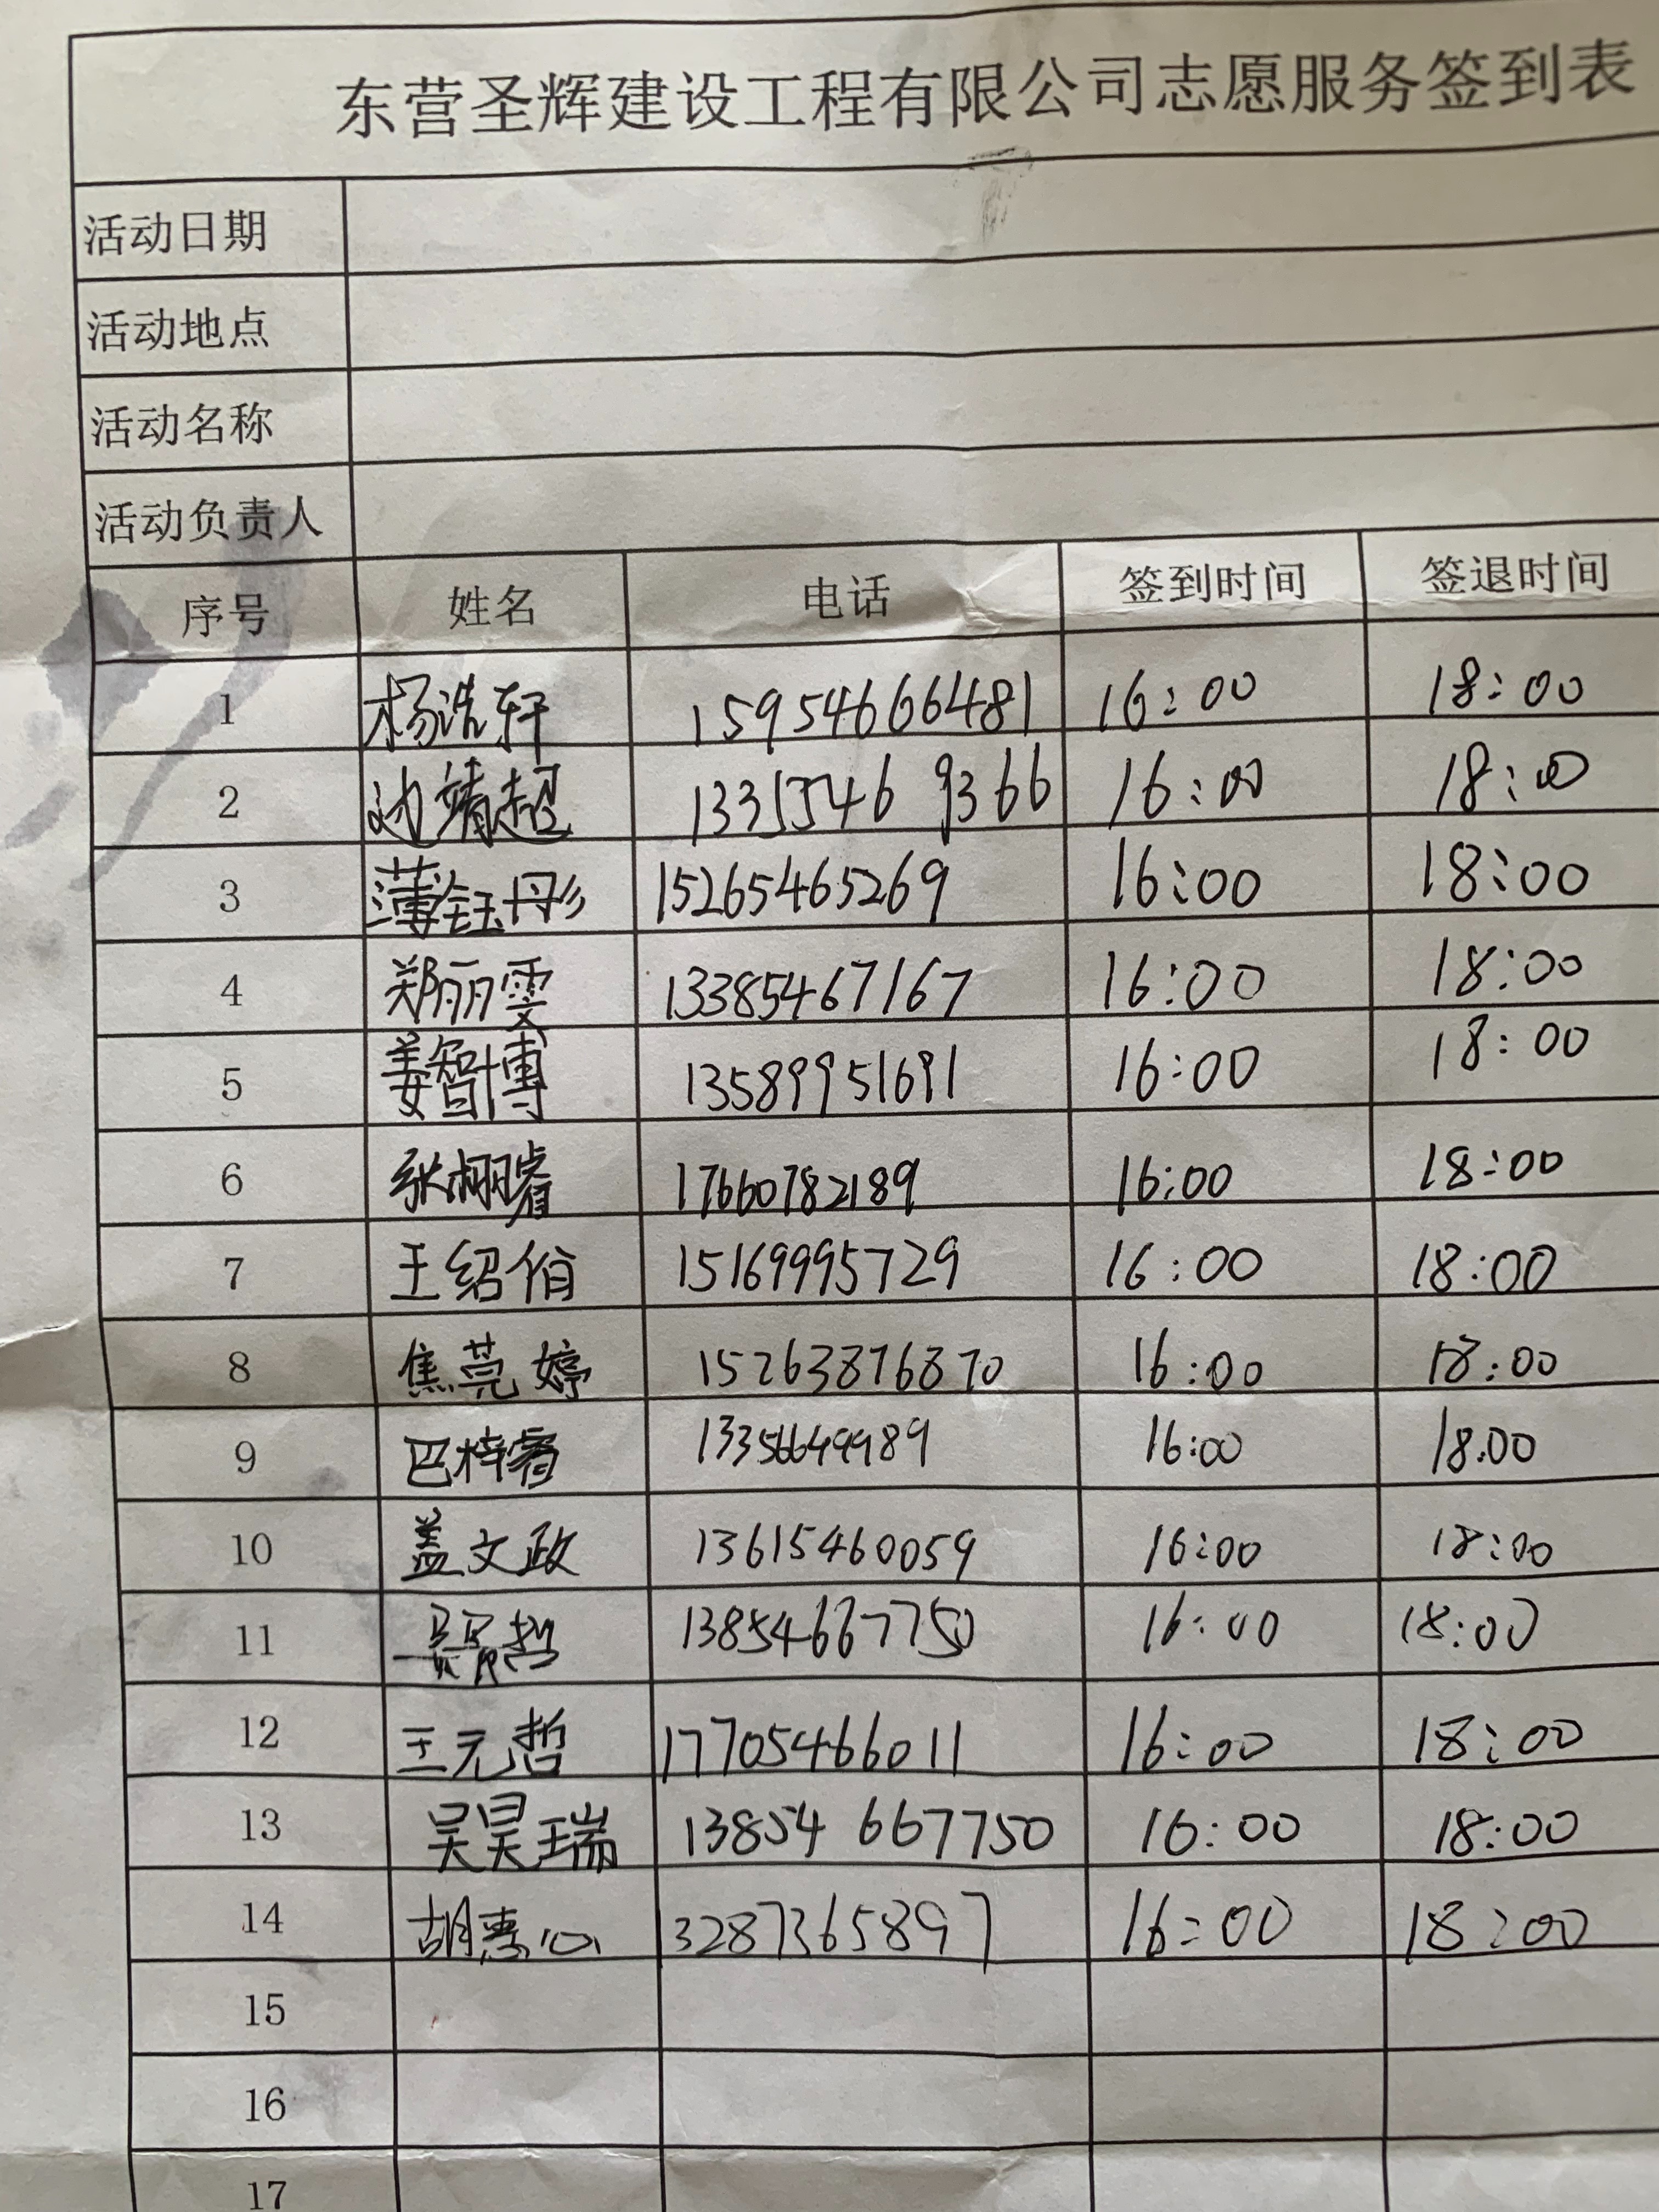 东营圣辉建设工程有限公司志愿服务签到表
活动日期
活动地点
活动名称
活动负责人
序号 姓名 电话 签到时间 签退时间
1 杨浩轩 15954666481 16:00 18:00
2 边靖超 13355469366 16:00 18:00
3 薄钰彤 15265465269 16:00 18:00
4 郑丽雯 13385467167 16:00 18:00
5 姜智博 13589951691 16:00 18:00
6 张栩睿 17660782189 16:00 18:00
7 王绍伯 15169995729 16:00 18:00
8 焦莞婷 15263876870 16:00 18:00
9 巴梓睿 13356649989 16:00 18.00
10 盖文政 13615460059 16:00 18:00
11 13854667750 16:00 18:00
12 王元哲 17705466011 16:00 18:00
13 吴昊瑞 13854 667750 16:00 18:00
14 胡惠心 13287365897 16:00 18:00
15
16
17